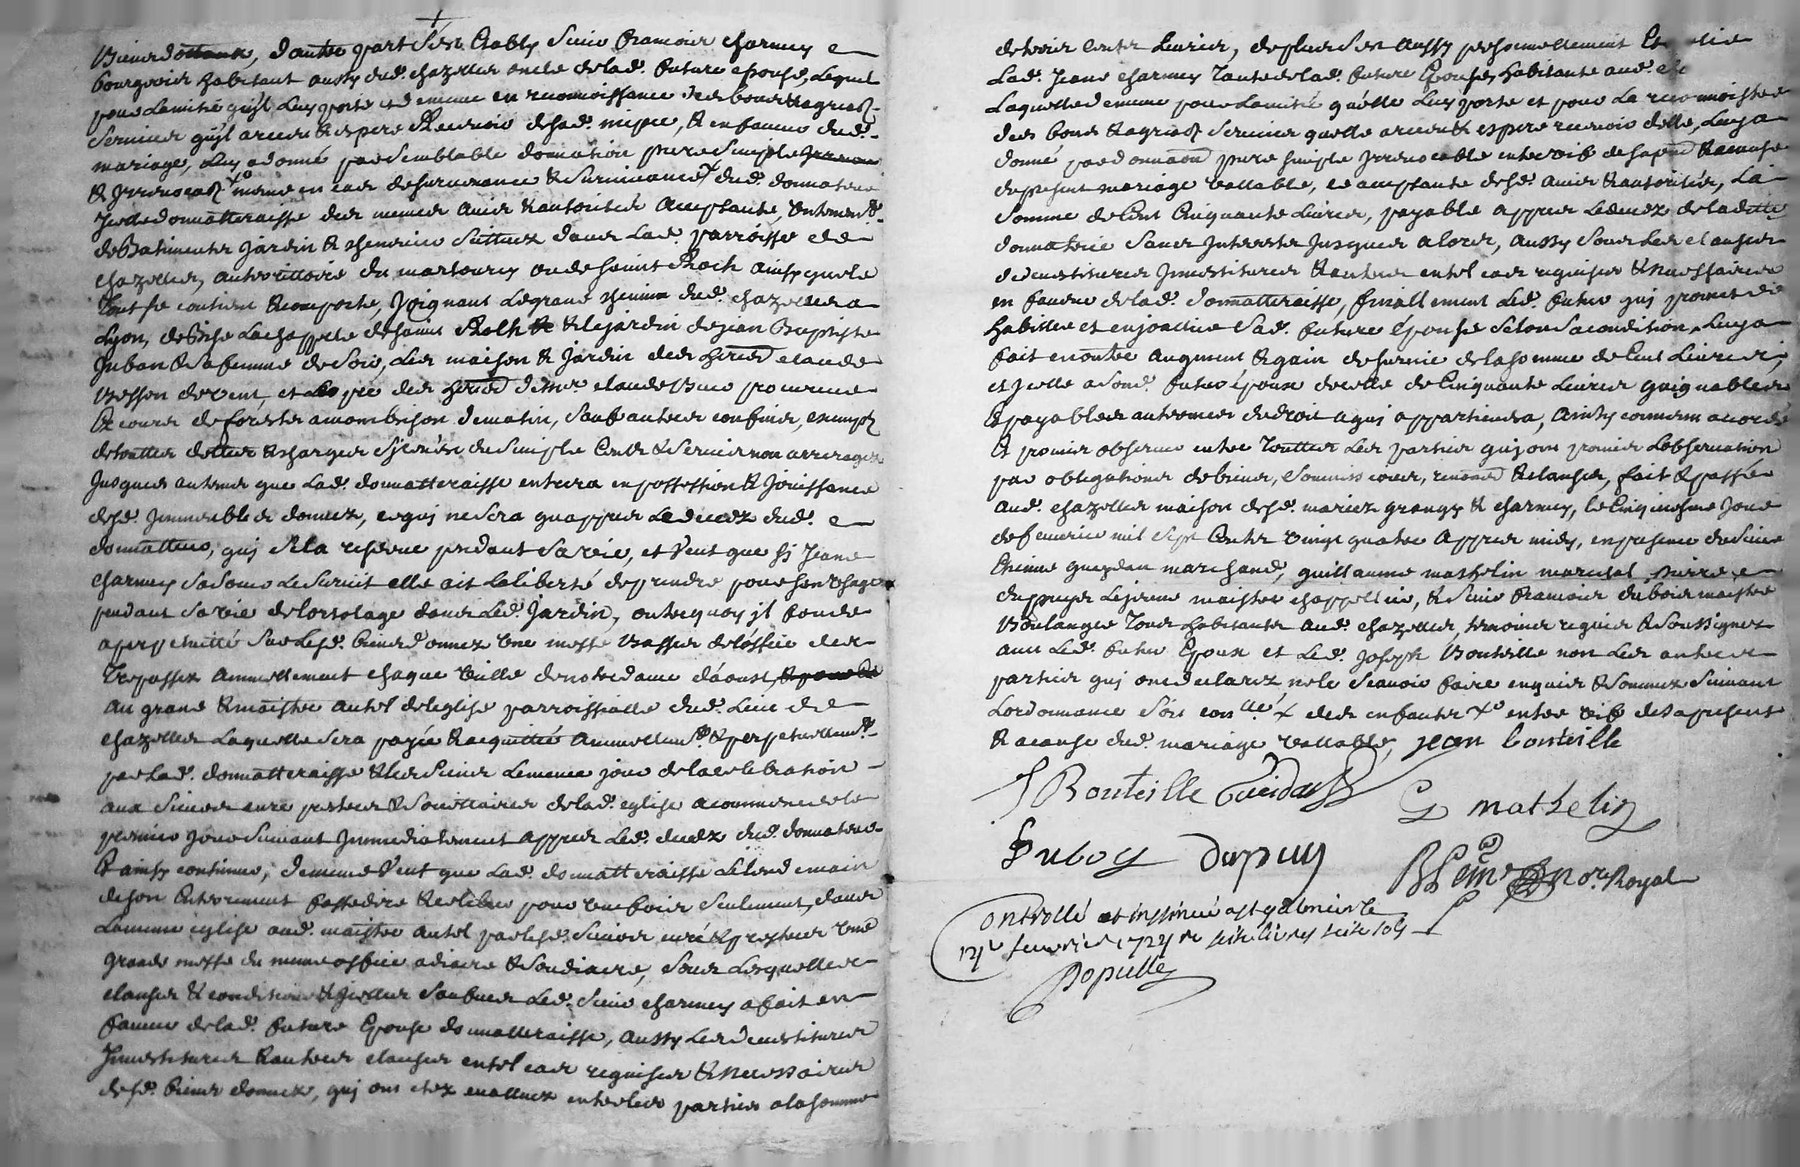 Biens d'ottaux, d'autre part s'est Estably sieur Francois charmey
bourgeois habitant aussy dud. chazelles oncle de lad. future espouse, Lequel
pour Lamitié qu'il Luy porte et de meme en reconnoissance des bons & agreab.
Services qu'il a receu & espere Recevoir de sad. niepce, & en faveur dud.
mariage, Luy a donné par semblable donnation pure simple
& Irrevocab. meme en cas de survenance & survivance dud. donnateur
Jcelle donnatteraisse des memes avis & autorités acceptante, 
de Batiments Jardin & chenevier scittuez dans Lad. parroisse de
chazelles, au territtoire du martouray ou de saint Roch ainsy que le
tout se contient & comporte, Joignant Legrand chemin dud. chazelles a
Lyon, de bise La chappelle de saint Roch & le jardin de jean Baptiste
Juban & sa femme de soir, Les maison & Jardin des hoirs claude
Besson de vent, et le pré des hoirs de Me claude Buer procureur
Es cours de forests a mombrison de matin, sauf autres confins, exempt
de toutes dettes & charges espierée du simple Cens & Servis non arrerages
Jusques au temps que Lad. donnatteraisse entrera en possession & Jouissance
desd. Immeubles donnez, ce qui ne sera qu'appres Le decez dud.
donnatteur, qui se la reserve pendant sa vie, et veut que si Jeane
charmey sa soeur Le survit elle ait la liberté de prendre pour son Usage
pendant sa vie de lortolage dans Led. Jardin, outre quoy il fonde
a perpetuitté sur Lesd. biens donnez une messe basse de l'office des
Trepassez annuellement chaque veille de notre dame d'aoust,
au grand & maistre autel de leglise parroissialle dud. Lieu de
chazelles Laquelle sera payée & acquittée annuellem. & perpetuellem.
par Lad. donnatteraisse & les siens Le meme jour de la celebration
aux sieurs curé pretres & societtaires de lad. eglise a commencer le
premier jour suivant Immediatement appres Led. decez dud. donnateur
& ainsy continuer, de meme veut que Lad. donnatteraisse Le lendemain
de son Enterrement fasse dire & celebrer pour une fois seulement, dans
La meme eglise aud. maistre autel par lesd. sieurs curé & prestres une
grande messe du meme office a diacre & soudiacre, sous Lesquelles
clauses & conditions & Jcelles sauves Led. sieur charmey a fait en
faveur de lad. future Epouse donnatteraisse, aussy Les devestitures
Jnvestitures & autres clauses en tel cas requises & necessaires
desd. biens donnez, qui ont etez evalluez entre les parties a la somme
de trois Cents Livres, de plus s'est aussy personnellement
Lad. Jeane charmey Tante de lad. future Epouse, habitante aud.
Laquelle de meme pour Lamitié qu'elle Luy porte et pour La reconnoistre
des bons & agreab. Services quelle a receu & espere recevoir delle, Luy a
donné par donnaon pure simple Irrevocable entre vifs de sapnt & a cause
du present mariage vallable, et acceptante desd. avis & autorités, La
Somme de Cent Cinquante Livres, payable appres Le decez de laditte
donnatrice sans Interets Jusques alors, aussy sous Les clauses
devestitures Jnvestitures & autres en tel cas requises & necessaires
en faveur de lad. donnatteraisse, finallement Led. futur qui promet de
habiller et enjoailler sad. future épouse selon sa condition, Luy a
fait en outre augment & gain de survie de la somme de Cent Livres,
et Jcelle a sond. futur époux de celle de Cinquante Livres gaignables
& payables aux termes de droit a qui appartiendra, ainsy convenu accordé
& promis observer entre toutes Les parties qui ont promis Lobservation
par obligations de biens, soumissions, renonons & clauses, fait & passé
aud. chazelles maison desd. mariez grangy & charmey, le Cinquiesme Jour
de fevrier mil sept Cents vingt quatre appres midy, en presence de sieur
Etienne gueydan marchand, guillaume mathelin marechal, pierre
dupuys Lejeune maistre chappellier, & sieur francois dubois maistre
Boulanger tous habitants aud. chazelles, temoins requis & soussignez
avec Led. futur Epoux et Led. Joseph Bouteille non Les autres
parties qui ont declarez ne le scavoir faire enquis & sommez suivant
Lordonnance des enfants entre vifs de sa presente
& a cause dud. mariage vallable, jean bouteille
J Bouteille Gueidan G mathelin
Duboy Dupuy
no.re Royal
Controllé et insinué a st galmier le
12e fevrier 1724 re seize livres seize sols
Populle